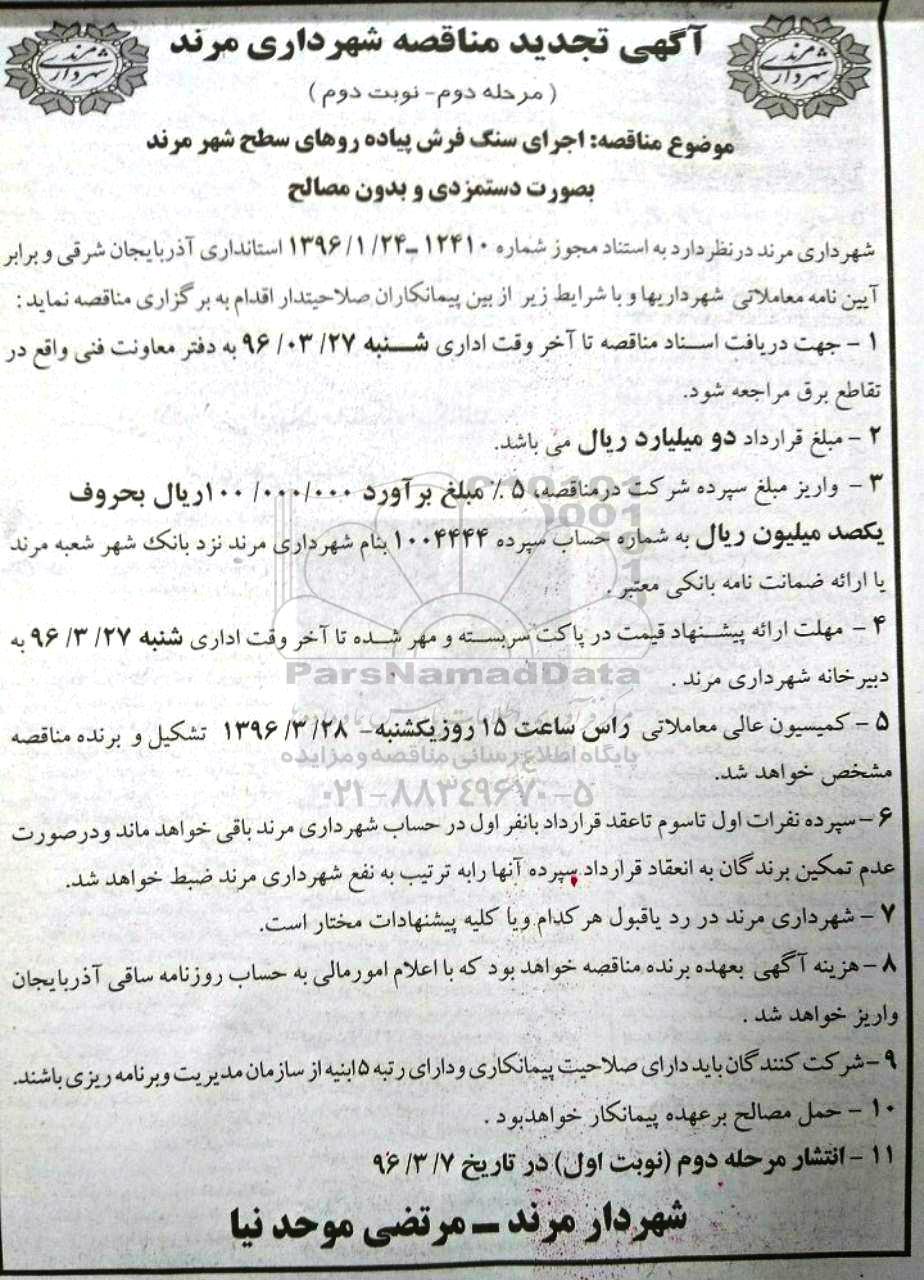 آگهی تجدید مناقصه شهرداری مرند
مرند
شهرداری
مرند
شهرداری
( مرحله دوم- نوبت دوم )
موضوع مناقصه: اجرای سنگ فرش پیاده روهای سطح شهر مرند
بصورت دستمزدی و بدون مصالح
شهرداری مرند درنظردارد به استناد مجوز شماره ۱۲۴۱۰ ـ ۱۳۹۶/۱/۲۴ استانداری آذربایجان شرقی و برابر
آیین نامه معاملاتی شهرداریها و با شرایط زیر از بین پیمانکاران صلاحیتدار اقدام به برگزاری مناقصه نماید :
۱ - جهت دریافت اسناد مناقصه تا آخر وقت اداری شنبه ۹۶/۰۳/۲۷ به دفتر معاونت فنی واقع در
تقاطع برق مراجعه شود.
۲ - مبلغ قرارداد دو میلیارد ریال می باشد.
۳ - واریز مبلغ سپرده شرکت درمناقصه، ۵٪ مبلغ برآورد ۱۰۰/۰۰۰/۰۰۰ریال بحروف
یکصد میلیون ریال به شماره حساب سپرده ۱۰۰۴۴۴۴ بنام شهرداری مرند نزد بانک شهر شعبه مرند
یا ارائه ضمانت نامه بانکی معتبر .
۴ - مهلت ارائه پیشنهاد قیمت در پاکت سربسته و مهر شده تا آخر وقت اداری شنبه ۹۶/۳/۲۷ به
دبیرخانه شهرداری مرند .
ParsNamadData
۵ - کمیسیون عالی معاملاتی راس ساعت ۱۵ روزیکشنبه- ۱۳۹۶/۳/۲۸ تشکیل و برنده مناقصه
مشخص خواهد شد.
پایگاه اطلاع رسانی مناقصه و مزایده
۰۲۱-۸۸۳۴۹۶۷۰-۵
۶ -سپرده نفرات اول تاسوم تاعقد قرارداد بانفر اول در حساب شهرداری مرند باقی خواهد ماند ودرصورت
عدم تمکین برندگان به انعقاد قرارداد سپرده آنها رابه ترتیب به نفع شهرداری مرند ضبط خواهد شد.
۷ - شهرداری مرند در رد یاقبول هر کدام ویا کلیه پیشنهادات مختار است.
۸ -هزینه آگهی بعهده برنده مناقصه خواهد بود که با اعلام امورمالی به حساب روزنامه ساقی آذربایجان
واریز خواهد شد .
۹ -شرکت کنندگان باید دارای صلاحیت پیمانکاری و دارای رتبه ۵ ابنیه از سازمان مدیریت وبرنامه ریزی باشند.
۱۰ - حمل مصالح برعهده پیمانکار خواهدبود .
۱۱ -انتشار مرحله دوم (نوبت اول) در تاریخ ۹۶/۳/۷
شهردار مرند ـ مرتضی موحد نیا